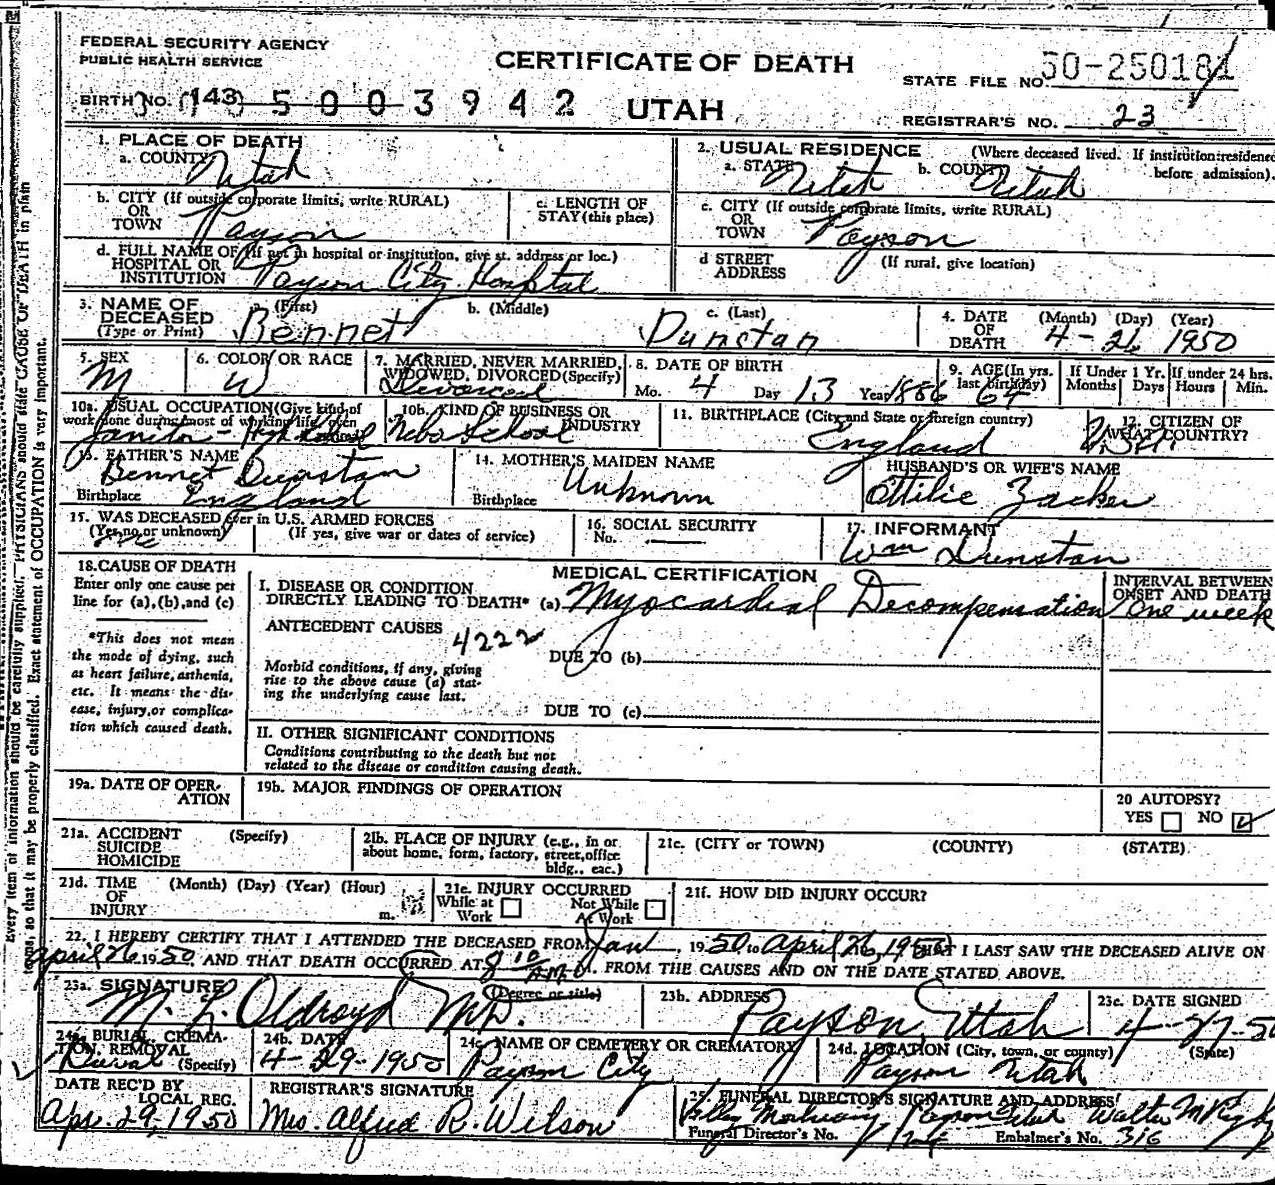 FEDERAL SECURITY AGENCY
PUBLIC HEALTH SERVICE
CERTIFICATE OF DEATH
STATE FILE NO. 50-250181
BIRTH NO. (143) 5003942 UTAH
REGISTRAR'S NO. 23
1. PLACE OF DEATH
a. COUNTY Utah
2. USUAL RESIDENCE (Where deceased lived. If institution: residence before admission).
a. STATE Utah b. COUNTY Utah
b. CITY (If outside corporate limits, write RURAL) OR TOWN Payson
c. LENGTH OF STAY (this place)
c. CITY (If outside corporate limits, write RURAL) OR TOWN Payson
d. FULL NAME OF (If not in hospital or institution, give st. address or loc.) HOSPITAL OR INSTITUTION Payson City Hospital
d STREET ADDRESS (If rural, give location)
3. NAME OF DECEASED (Type or Print) a. (First) Bennet b. (Middle) c. (Last) Dunstan
4. DATE OF DEATH (Month) (Day) (Year) 4-26 1950
5. SEX M
6. COLOR OR RACE W
7. MARRIED, NEVER MARRIED, WIDOWED, DIVORCED (Specify) Divorced
8. DATE OF BIRTH Mo. 4 Day 13 Year 1886
9. AGE (In yrs. last birthday) 64
If Under 1 Yr. Months Days
If under 24 hrs. Hours Min.
10a. USUAL OCCUPATION (Give kind of work done during most of working life, even Janitor - High School
10b. KIND OF BUSINESS OR INDUSTRY Nebo School
11. BIRTHPLACE (City and State or foreign country) England
12. CITIZEN OF WHAT COUNTRY? U.S.A.
13. FATHER'S NAME Bennet Dunstan
Birthplace England
14. MOTHER'S MAIDEN NAME Unknown
Birthplace
HUSBAND'S OR WIFE'S NAME
Ottilie Zacker
15. WAS DECEASED ever in U.S. ARMED FORCES
(Yes, no or unknown) (If yes, give war or dates of service)
16. SOCIAL SECURITY No.
17. INFORMANT Wm Dunstan
18. CAUSE OF DEATH
Enter only one cause per line for (a), (b), and (c)
*This does not mean the mode of dying, such as heart failure, asthenia, etc. It means the disease, injury, or complication which caused death.
MEDICAL CERTIFICATION
I. DISEASE OR CONDITION DIRECTLY LEADING TO DEATH* (a) Myocardial Decompensation
INTERVAL BETWEEN ONSET AND DEATH One week
ANTECEDENT CAUSES 4222
DUE TO (b)
Morbid conditions, if any, giving rise to the above cause (a) stating the underlying cause last.
DUE TO (c)
II. OTHER SIGNIFICANT CONDITIONS
Conditions contributing to the death but not related to the disease or condition causing death.
19a. DATE OF OPERATION
19b. MAJOR FINDINGS OF OPERATION
20 AUTOPSY?
YES NO
21a. ACCIDENT SUICIDE HOMICIDE (Specify)
21b. PLACE OF INJURY (e.g., in or about home, form, factory, street, office bldg., eac.)
21c. (CITY or TOWN) (COUNTY) (STATE)
21d. TIME OF INJURY (Month) (Day) (Year) (Hour) m.
21e. INJURY OCCURRED
While at Work Not While At Work
21f. HOW DID INJURY OCCUR?
22. I HEREBY CERTIFY THAT I ATTENDED THE DECEASED FROM Jan 1, 1950 to April 26, 1950, THAT I LAST SAW THE DECEASED ALIVE ON
April 26 1950, AND THAT DEATH OCCURRED AT 8 10 A.M. FROM THE CAUSES AND ON THE DATE STATED ABOVE.
23a. SIGNATURE (Degree or title) M. L. Oldroyd M.D.
23b. ADDRESS Payson, Utah
23c. DATE SIGNED 4-27-50
24a. BURIAL, CREMATION, REMOVAL (Specify) Burial
24b. DATE 4-29-1950
24c. NAME OF CEMETERY OR CREMATORY Payson City
24d. LOCATION (City, town, or county) (State) Payson Utah
DATE REC'D BY LOCAL REG. Apr. 29, 1950
REGISTRAR'S SIGNATURE Mrs. Alfred R. Wilson
25. FUNERAL DIRECTOR'S SIGNATURE AND ADDRESS
Valley Mortuary Payson Utah Walter
Funeral Director's No. Embalmer's No. 316
Every item of information should be carefully supplied. PHYSICIANS should state CAUSE OF DEATH in plain
terms, so that it may be properly classified. Exact statement of OCCUPATION is very important.